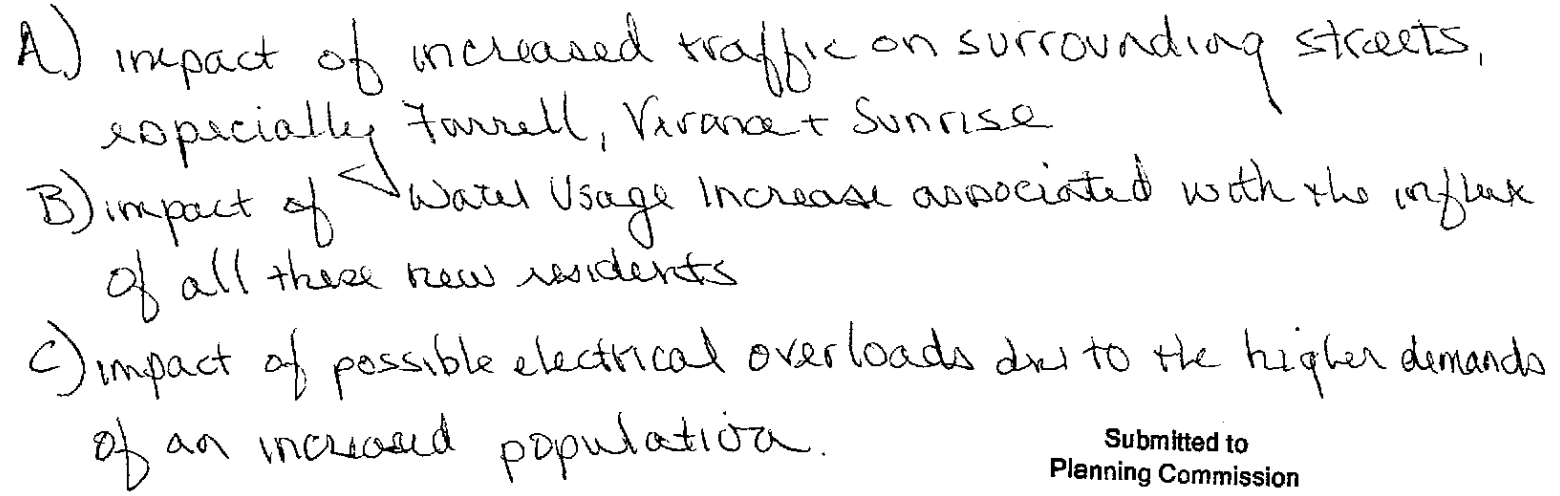 A) impact of increased traffic on surrounding streets,
especially Farrell, Verano + Sunrise
B) impact of Water Usage Increase associated with the influx
of all these new residents
C) impact of possible electrical overloads due to the higher demands
of an increased population.
Submitted to
Planning Commission